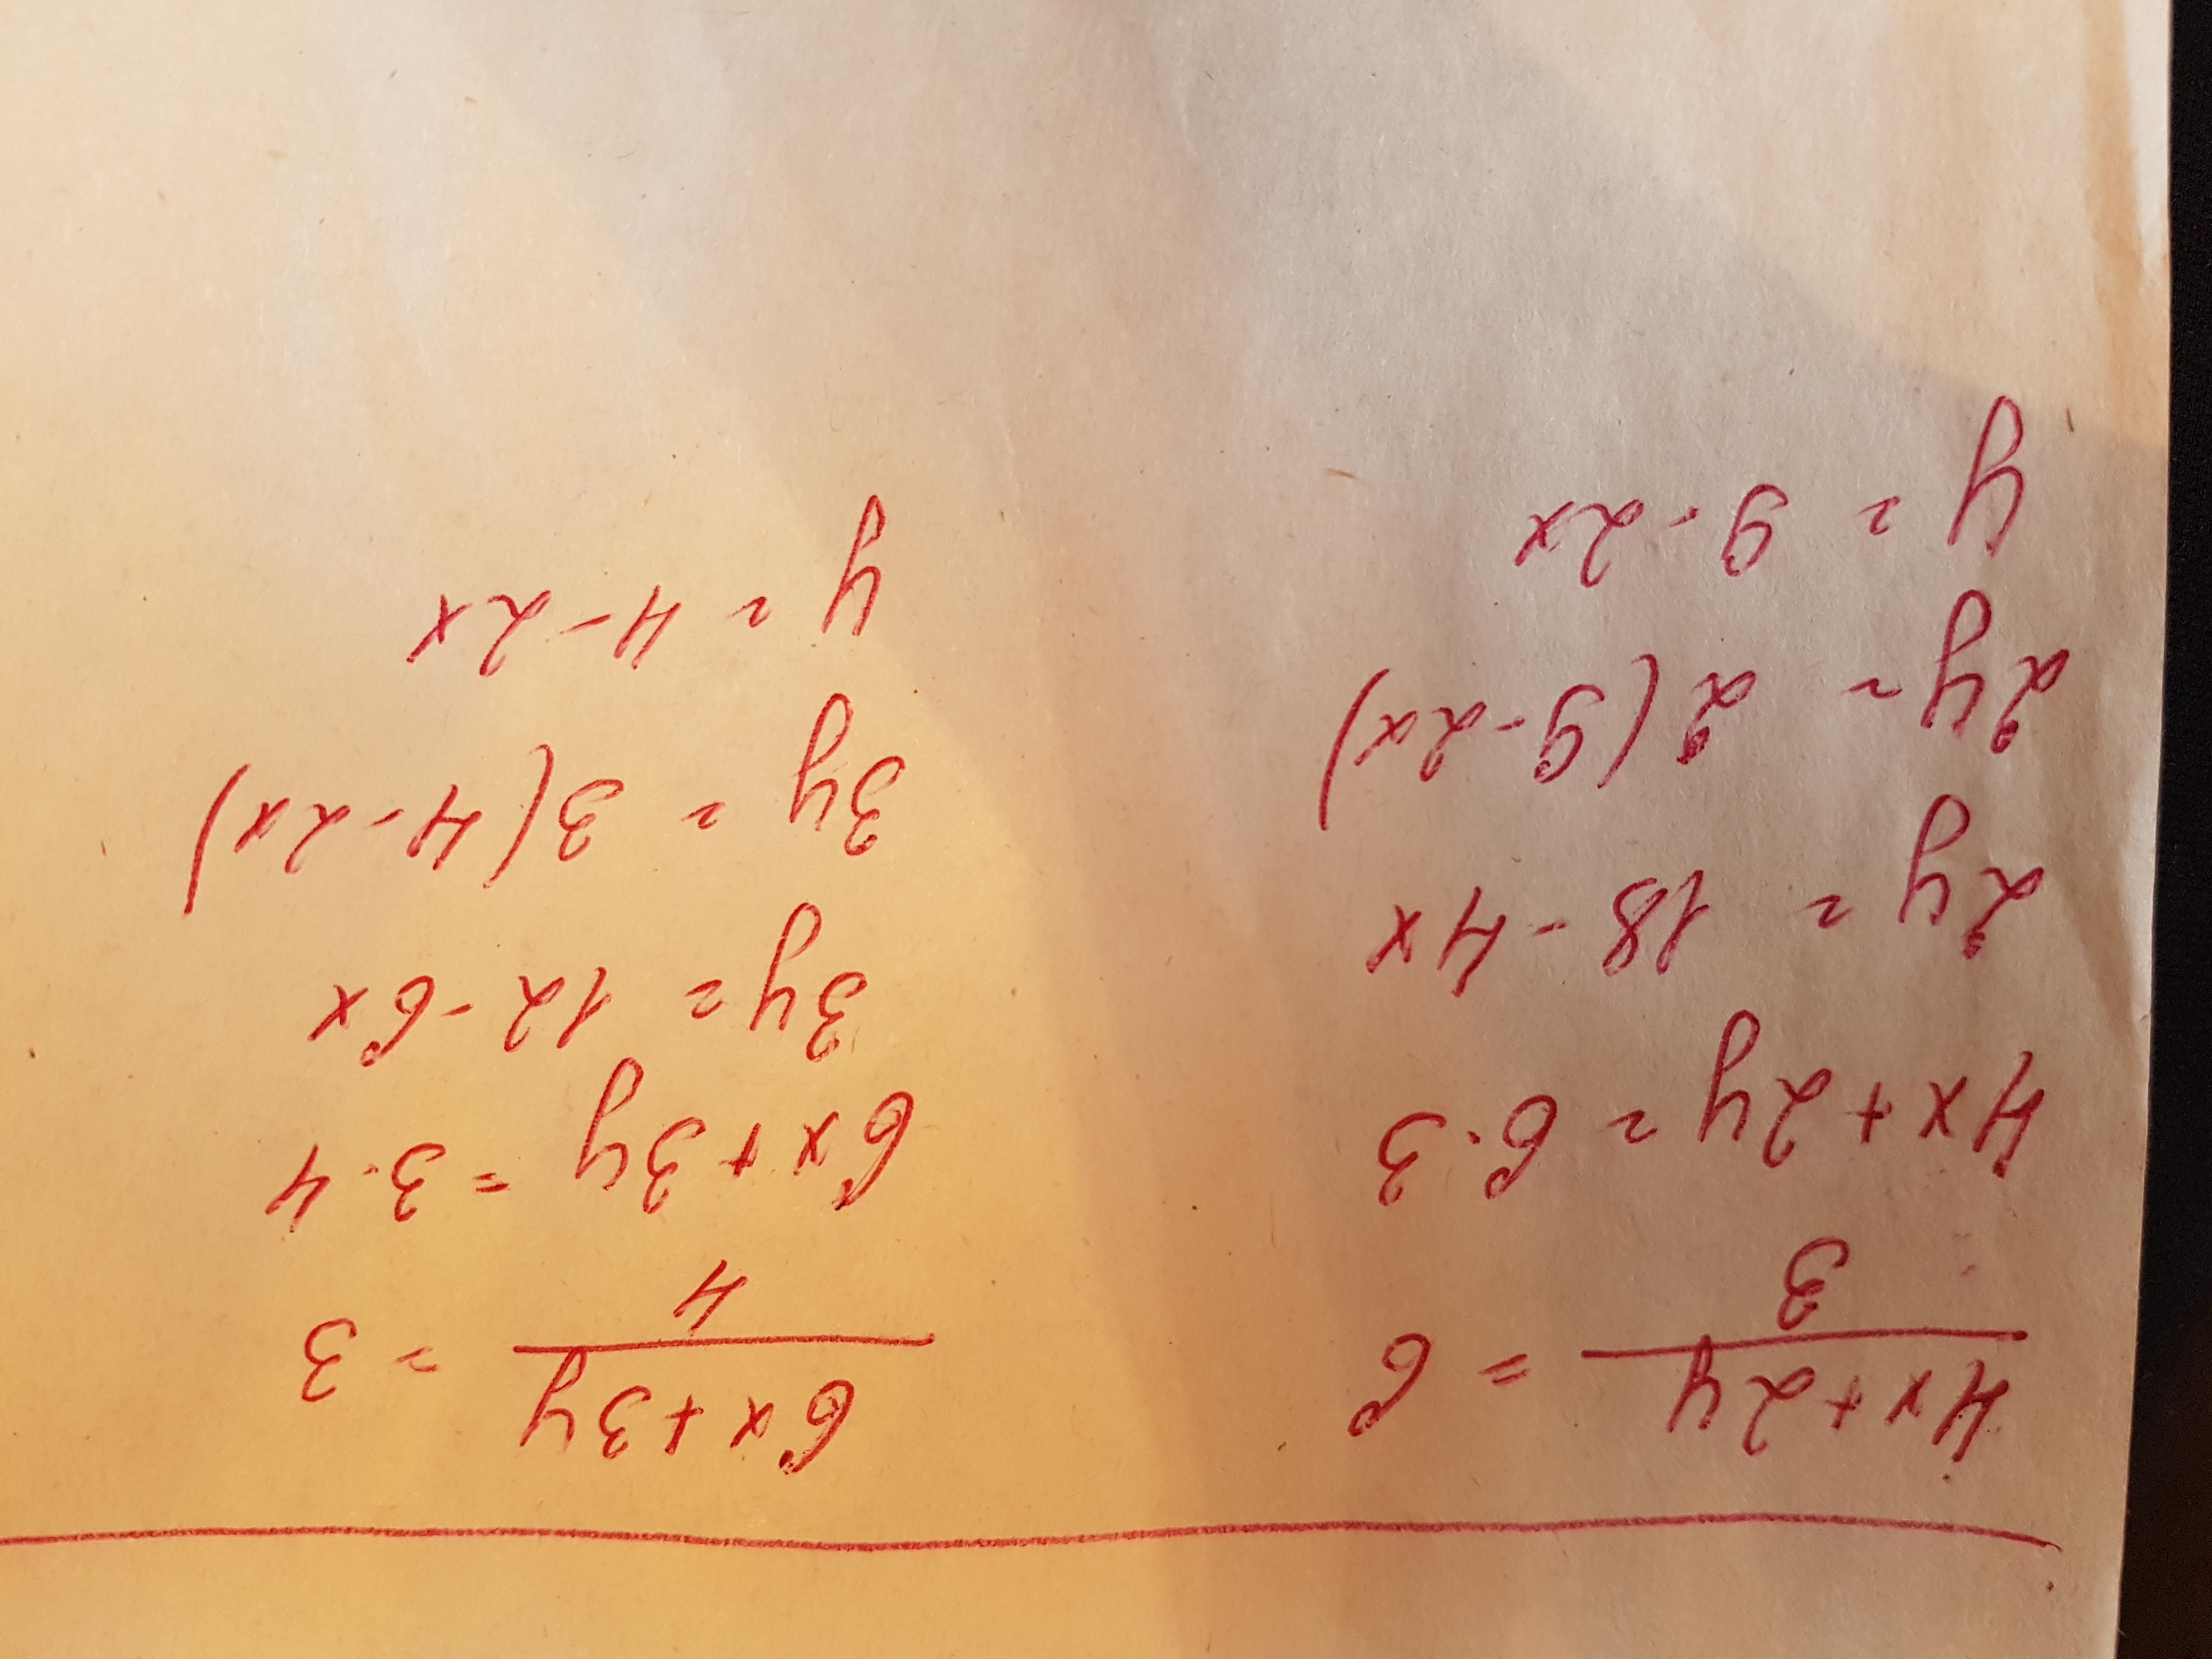 4x+2y
3
= 6
4x+2y = 6·3
2y = 18-4x
2y = 2(9-2x)
y = 9-2x
6x+3y
4
= 3
6x+3y = 3·4
3y = 12-6x
3y = 3(4-2x)
y = 4-2x